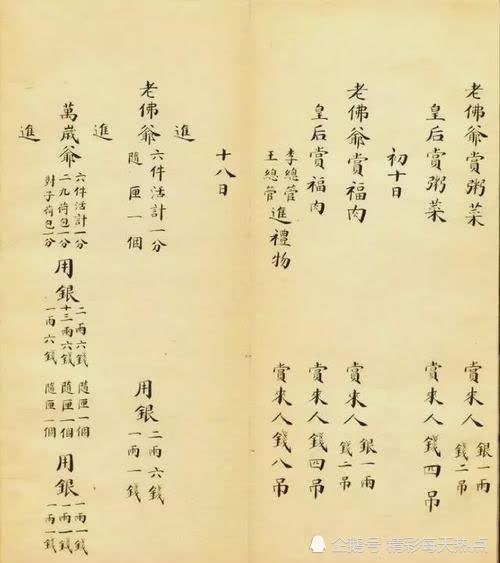 老佛爺賞粥菜 賞來人 銀一兩 錢二吊
皇后賞粥菜 賞來人錢四吊
初十日
老佛爺賞福肉 賞來人 銀一兩 錢二吊
皇后賞福肉 賞來人錢四吊
李總管 王總管 進禮物 賞來人錢八吊
十八日
進
老佛爺 六件活計一分 隨匣一個 用銀 二兩六錢 一兩一錢
進
萬歲爺 六件活計一分 二九荷包一分 對子荷包一分 用銀 二兩六錢 十三兩六錢 一兩六錢 隨匣一個 隨匣一個 隨匣一個 用銀 一兩一錢 一兩一錢 一兩一錢
進
企鹅号 精彩每天热点